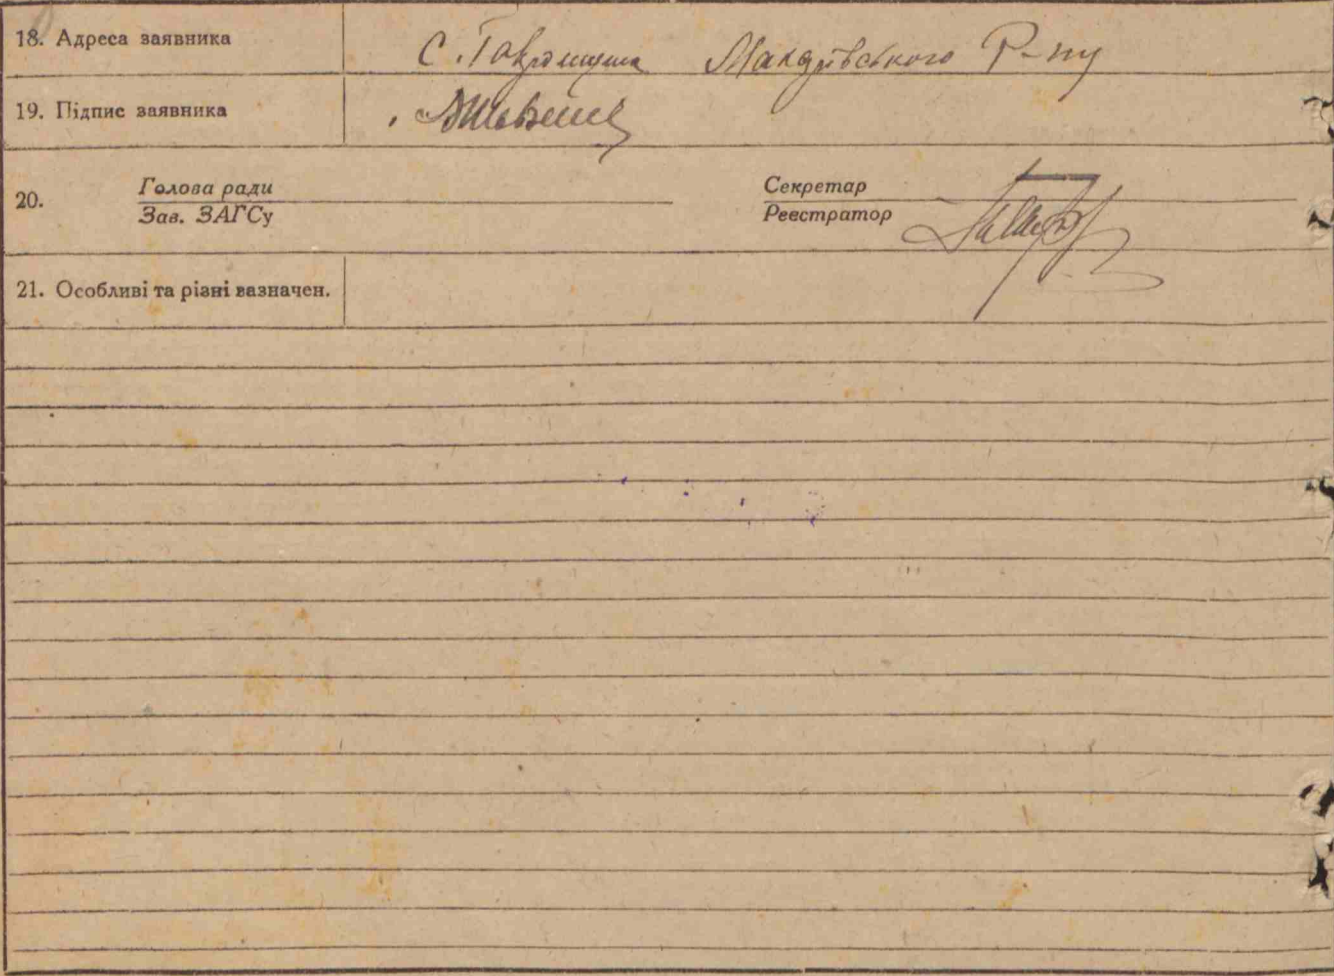 18. Адреса заявника С. Гавронщина Макарівського Р-ну
19. Підпис заявника
20. Голова ради Секретар
Зав. ЗАГСу Реєстратор
21. Особливі та різні вазначен.